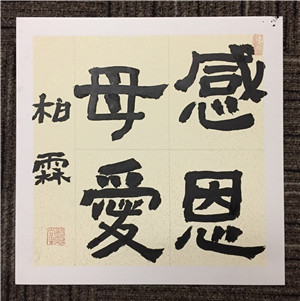 感恩
母愛
柏霖